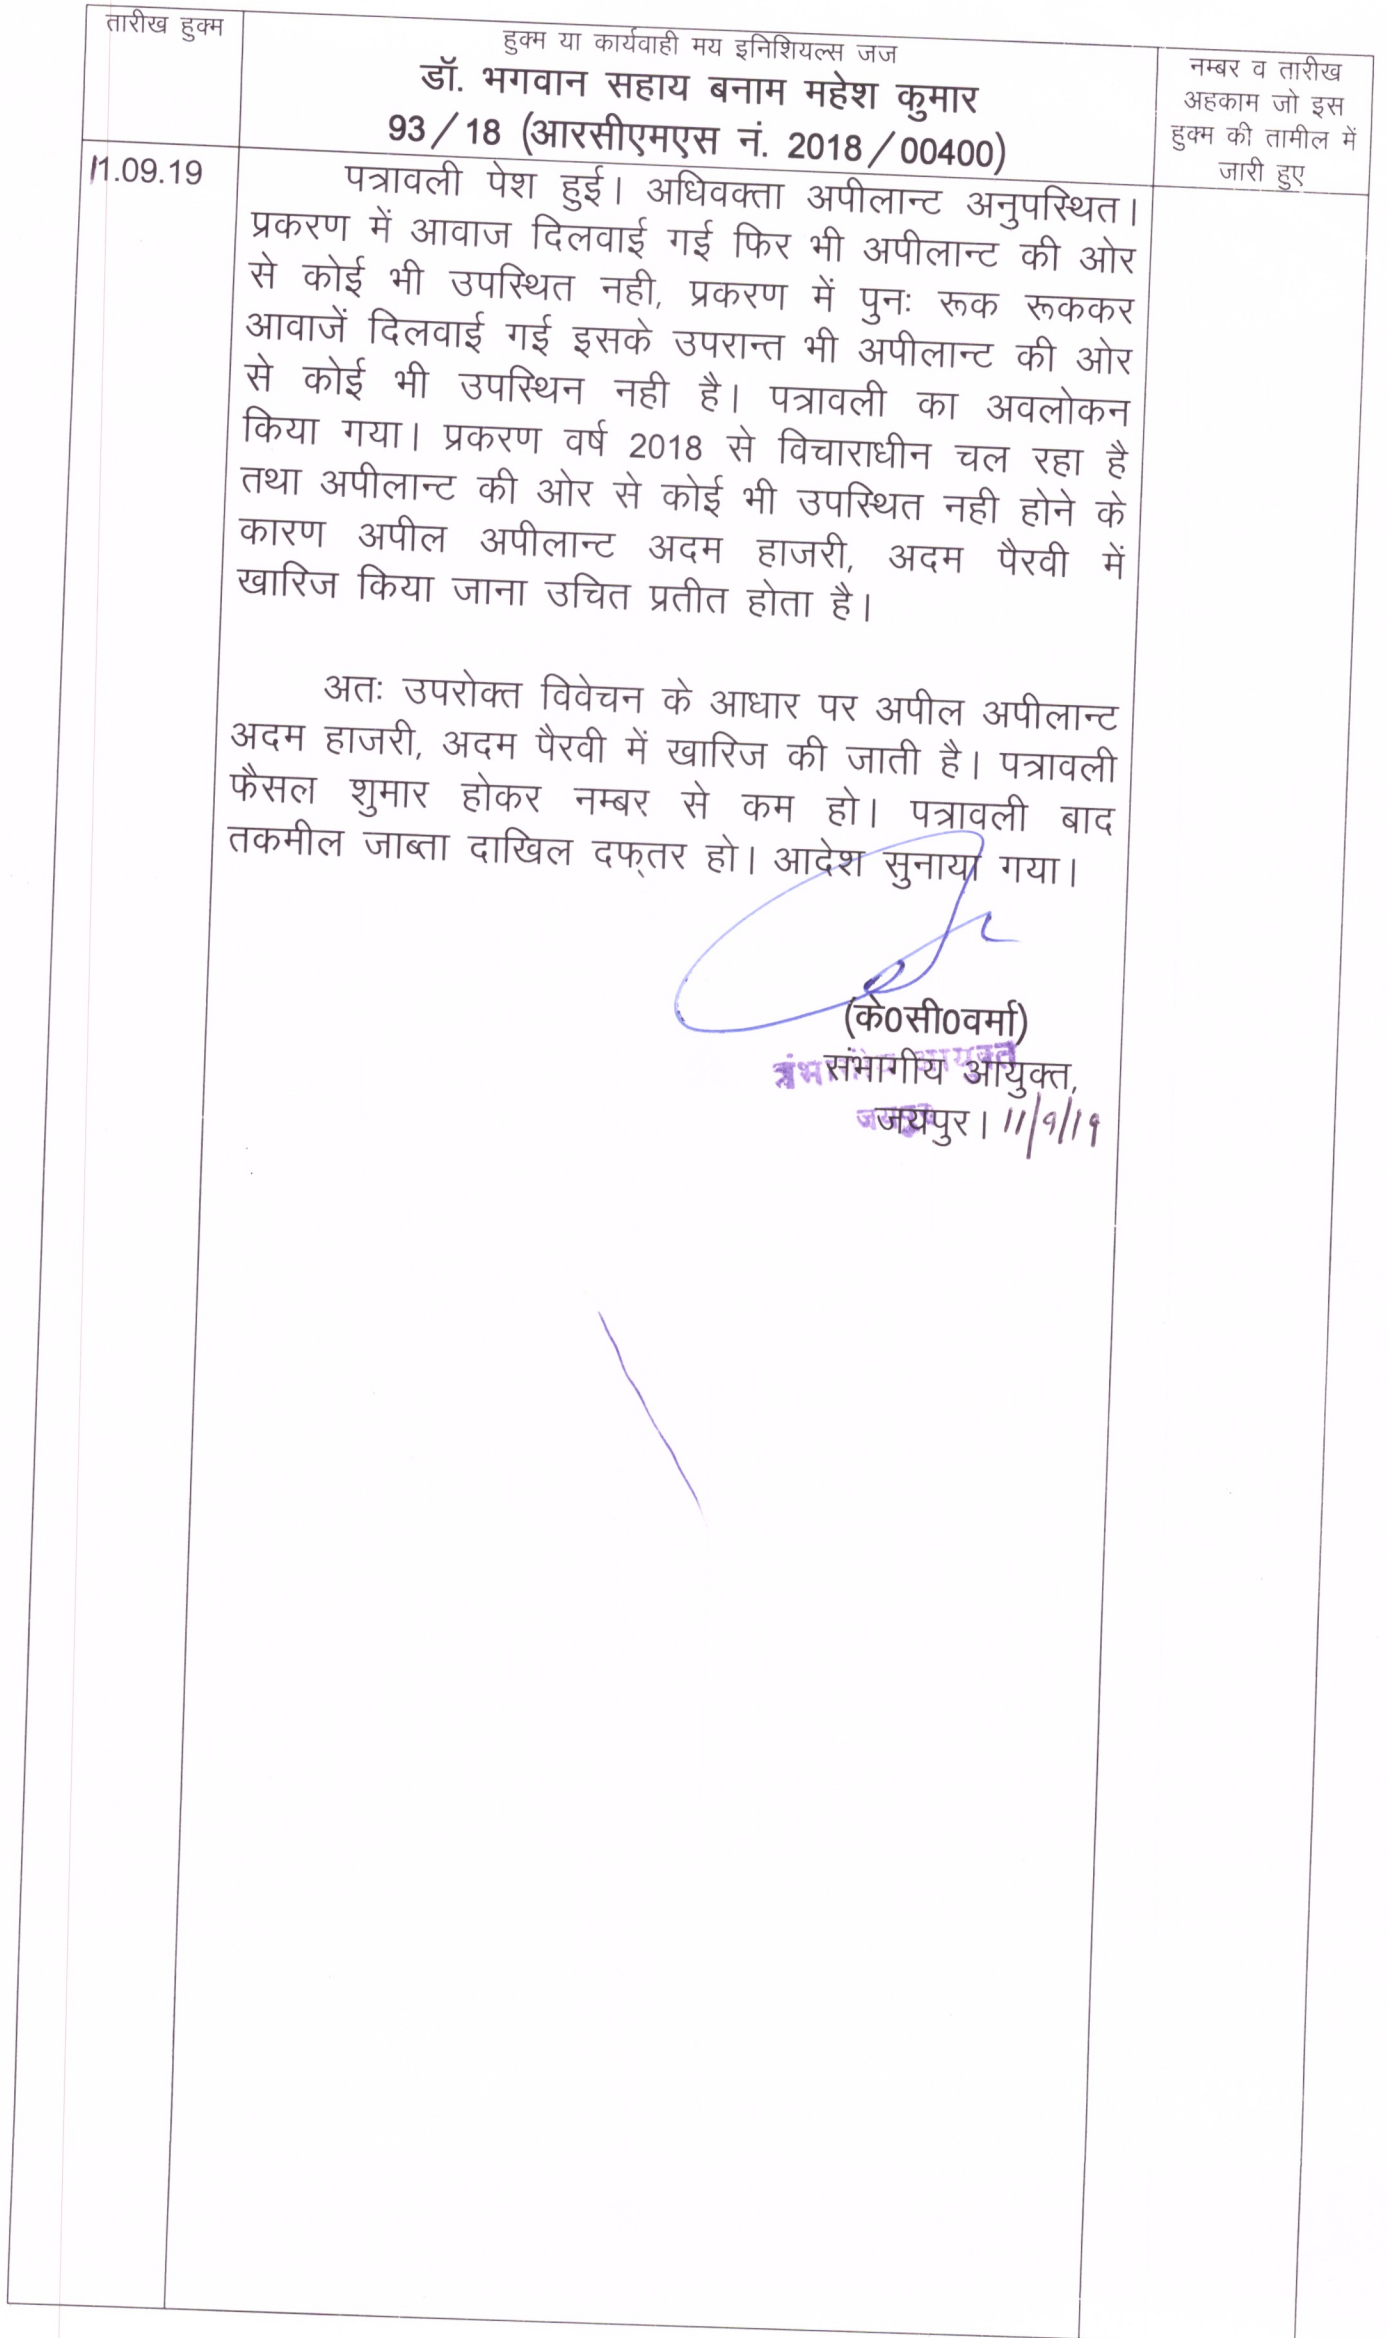 तारीख हुक्म
हुक्म या कार्यवाही मय इनिशियल्स जज
डॉ. भगवान सहाय बनाम महेश कुमार
93/18 (आरसीएमएस नं. 2018/00400)
नम्बर व तारीख
अहकाम जो इस
हुक्म की तामील में
जारी हुए
11.09.19
पत्रावली पेश हुई। अधिवक्ता अपीलान्ट अनुपस्थित।
प्रकरण में आवाज दिलवाई गई फिर भी अपीलान्ट की ओर
से कोई भी उपस्थित नही, प्रकरण में पुनः रूक रूककर
आवाजें दिलवाई गई इसके उपरान्त भी अपीलान्ट की ओर
से कोई भी उपस्थिन नही है। पत्रावली का अवलोकन
किया गया। प्रकरण वर्ष 2018 से विचाराधीन चल रहा है
तथा अपीलान्ट की ओर से कोई भी उपस्थित नही होने के
कारण अपील अपीलान्ट अदम हाजरी, अदम पैरवी में
खारिज किया जाना उचित प्रतीत होता है।
अतः उपरोक्त विवेचन के आधार पर अपील अपीलान्ट
अदम हाजरी, अदम पैरवी में खारिज की जाती है। पत्रावली
फैसल शुमार होकर नम्बर से कम हो। पत्रावली बाद
तकमील जाब्ता दाखिल दफ्तर हो। आदेश सुनाया गया।
(के0सी0वर्मा)
संभागीय आयुक्त
संभागीय आयुक्त,
जयपुर
जयपुर। 11/9/19